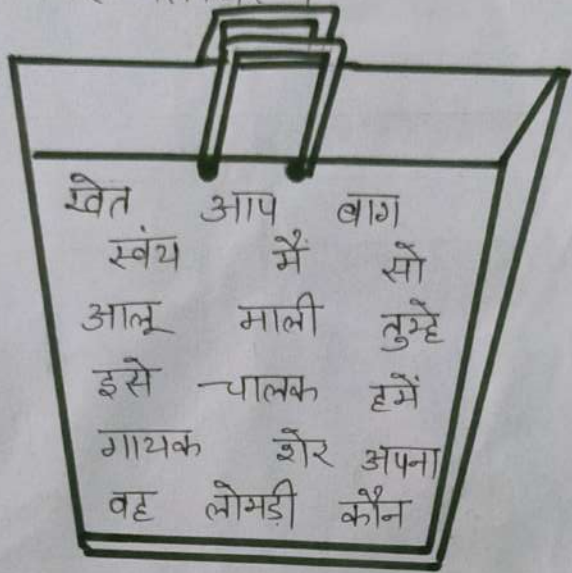 खेत आप बाग
स्वंय मैं सो
आलू माली तुम्हे
इसे चालक हमें
गायक शेर अपना
वह लोमड़ी कौन